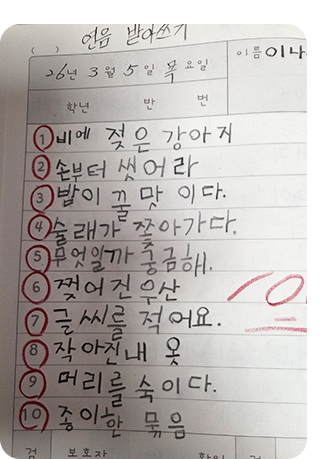 연음 받아쓰기
( )
26년 3월 5일 목요일
이름 이나
학년 반 번
1 비에 젖은 강아지
2 손부터 씻어라
3 밥이 꿀맛이다.
4 술래가 쫓아가다.
5 무엇일까 궁금해.
6 찢어진 우산
7 글씨를 적어요.
8 작아진 내 옷
9 머리를 숙이다.
10 종이 한 묶음
10
검 보호자 확인 검